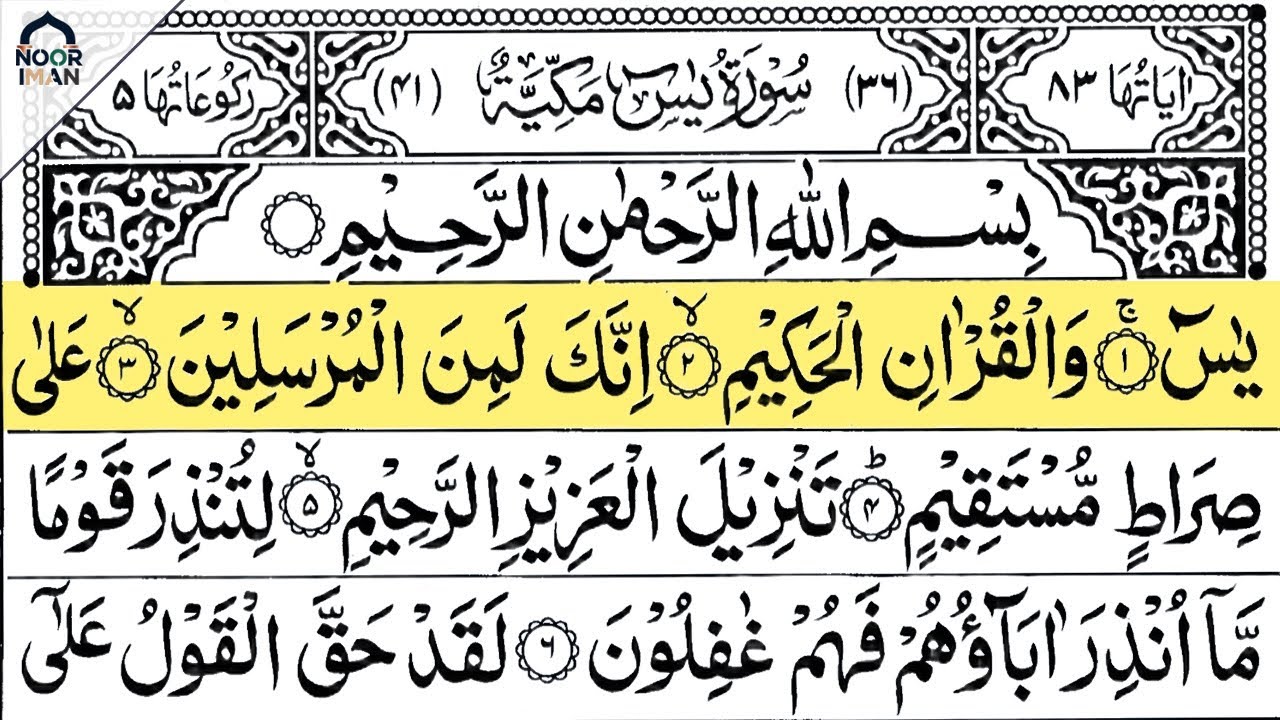 NOOR
IMAN
اٰيَاتُهَا ٨٣
(٣٦) سُوْرَةُ يٰسٓ مَكِّيَّةٌ (٤١)
رُكُوْعَاتُهَا ۵
بِسْمِ اللّٰهِ الرَّحْمٰنِ الرَّحِيْمِ
يٰسٓ ۚ ﴿١﴾ وَالْقُرْاٰنِ الْحَكِيْمِ ۙ ﴿٢﴾ اِنَّكَ لَمِنَ الْمُرْسَلِيْنَ ۙ ﴿٣﴾ عَلٰى
صِرَاطٍ مُّسْتَقِيْمٍ ؕ ﴿۴﴾ تَنْزِيْلَ الْعَزِيْزِ الرَّحِيْمِ ۙ ﴿۵﴾ لِتُنْذِرَ قَوْمًا
مَّاۤ اُنْذِرَ اٰبَآؤُهُمْ فَهُمْ غٰفِلُوْنَ ﴿۶﴾ لَقَدْ حَقَّ الْقَوْلُ عَلٰٓى